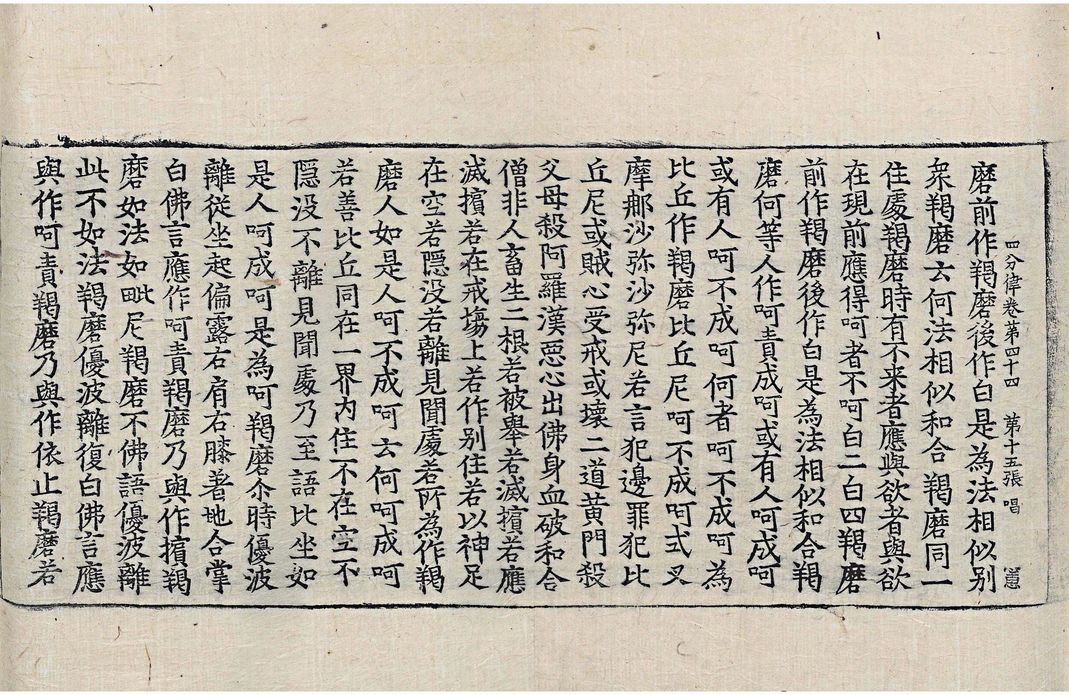 四分律卷第四十四 第十五張 唱
磨前作羯磨後作白是為法相似別
衆羯磨云何法相似和合羯磨同一
住處羯磨時有不来者應與欲者與欲
在現前應得呵者不呵白二白四羯磨
前作羯磨後作白是為法相似和合羯
磨何等人作呵責成呵或有人呵成呵
或有人呵不成呵何者呵不成呵為
比丘作羯磨比丘尼呵不成呵式叉
摩那沙弥沙弥尼若言犯邊罪犯比
丘尼或賊心受戒或壞二道黄門殺
父母殺阿羅漢惡心出佛身血破和合
僧非人畜生二根若被舉若滅擯若應
滅擯若在戒塲上若作别住若以神足
在空若隱没若離見聞處若所為作羯
磨人如是人呵不成呵云何呵成呵
若善比丘同在一界内住不在空不
隱没不離見聞處乃至語比坐如
是人呵成呵是為呵羯磨尒時優波
離從坐起偏露右肩右膝著地合掌
白佛言應作呵責羯磨乃與作擯羯
磨如法如毗尼羯磨不佛語優波離
此不如法羯磨優波離復白佛言應
與作呵責羯磨乃與作依止羯磨若